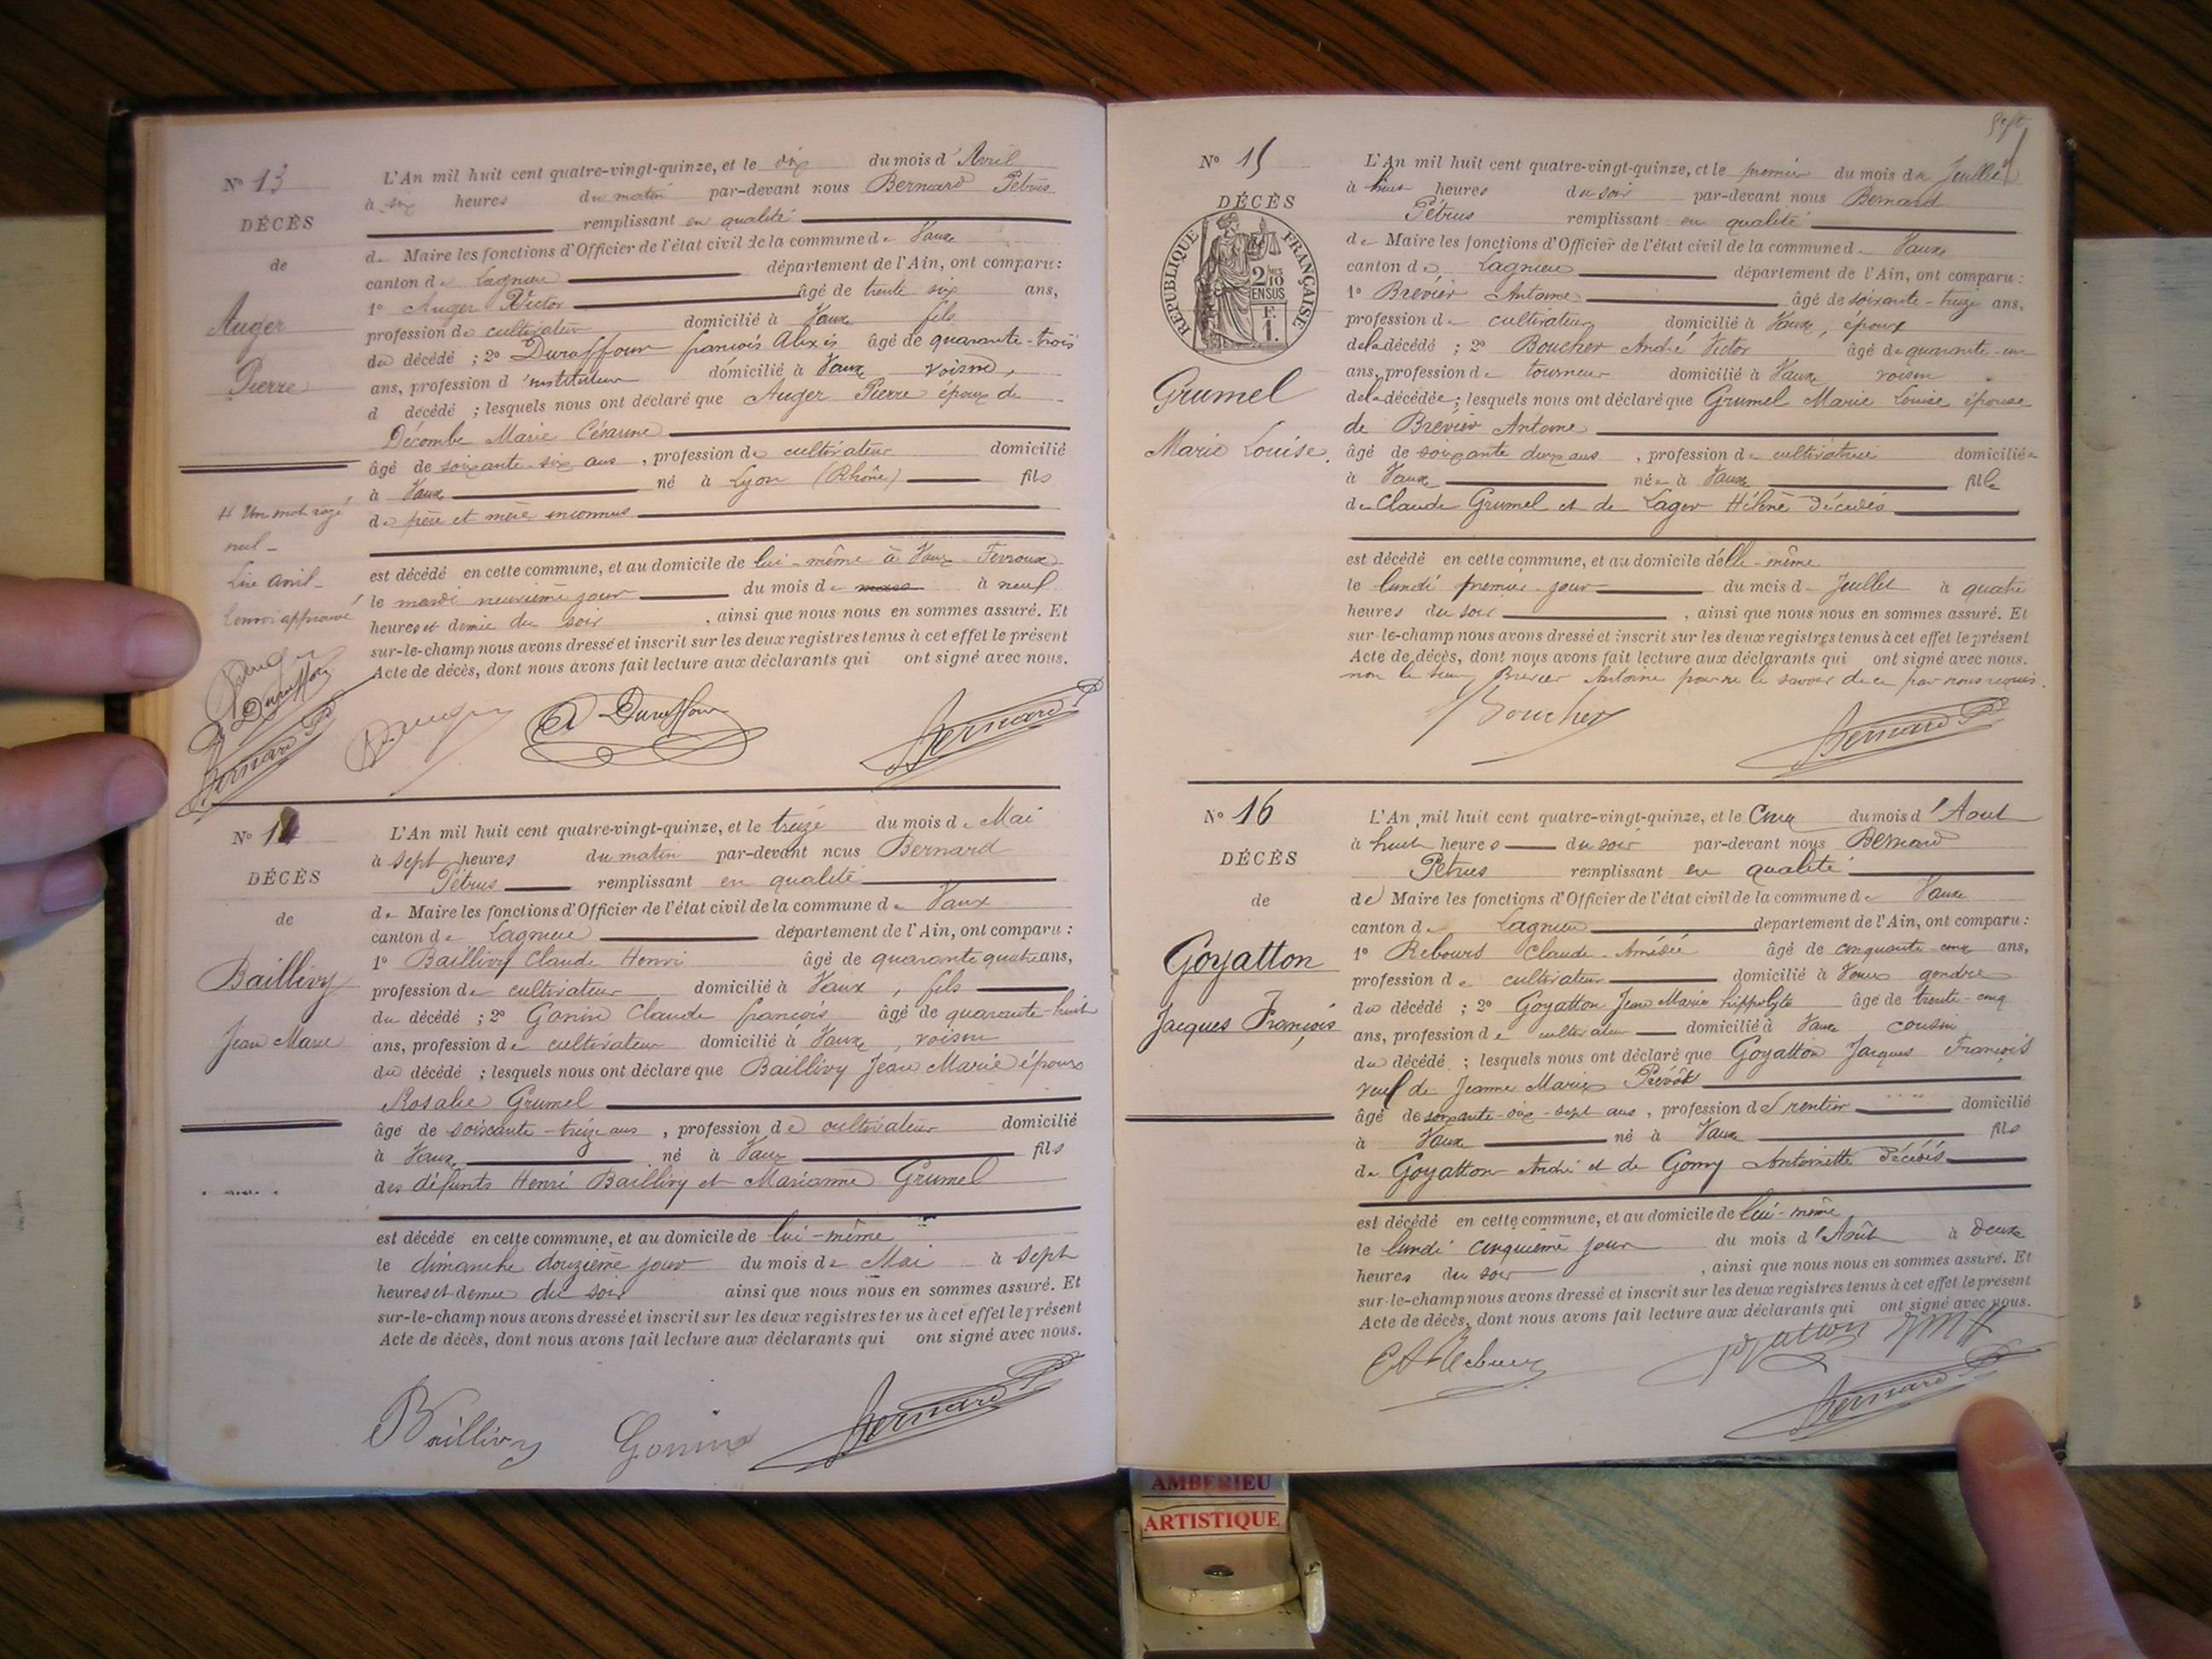 Nº 13
DÉCÈS
de
Auger
Pierre
L'An mil huit cent quatre-vingt-quinze, et le dix du mois d'Avril
à six heures du matin par-devant nous Bernard Pétrus
remplissant en qualité
de Maire les fonctions d'Officier de l'état civil de la commune de Vaux
canton de Lagnieu département de l'Ain, ont comparu :
1º Auger Victor âgé de trente six ans,
profession de cultivateur domicilié à Vaux fils
du décédé ; 2º Duraffour françois Alexis âgé de quarante-trois
ans, profession d'instituteur domicilié à Vaux voisin,
d décédé ; lesquels nous ont déclaré que Auger Pierre époux de
Décombe Marie Césarine
âgé de soixante-six ans, profession de cultivateur domicilié
à Vaux né à Lyon (Rhône) fils
de père et mère inconnus
est décédé en cette commune, et au domicile de lui-même à Vaux-Fevroux
le mardi neuvième jour du mois de mars à neuf
heures et demie du soir, ainsi que nous nous en sommes assuré. Et
sur-le-champ nous avons dressé et inscrit sur les deux registres tenus à cet effet le présent
Acte de décès, dont nous avons fait lecture aux déclarants qui ont signé avec nous.
Un mot rayé
nul -
Lire avril -
Renvoi approuvé
Auger
A Duraffour
Bernard P
Auger A Duraffour Bernard P
Nº 14
DÉCÈS
de
Baillivy
Jean Marie
L'An mil huit cent quatre-vingt-quinze, et le treize du mois de Mai
à sept heures du matin par-devant nous Bernard
Pétrus remplissant en qualité
de Maire les fonctions d'Officier de l'état civil de la commune de Vaux
canton de Lagnieu département de l'Ain, ont comparu :
1º Baillivy Claude Henri âgé de quarante quatre ans,
profession de cultivateur domicilié à Vaux, fils
du décédé ; 2º Gonin Claude françois âgé de quarante-huit
ans, profession de cultivateur domicilié à Vaux, voisin
du décédé ; lesquels nous ont déclaré que Baillivy Jean Marie époux
Rosalie Grumel
âgé de soixante-treize ans, profession de cultivateur domicilié
à Vaux né à Vaux fils
des défunts Henri Baillivy et Marianne Grumel
est décédé en cette commune, et au domicile de lui-même
le dimanche douzième jour du mois de Mai à sept
heures et demie du soir ainsi que nous nous en sommes assuré. Et
sur-le-champ nous avons dressé et inscrit sur les deux registres tenus à cet effet le présent
Acte de décès, dont nous avons fait lecture aux déclarants qui ont signé avec nous.
Baillivy Gonin Bernard P
Sept
Nº 15
DÉCÈS
RÉPUBLIQUE FRANÇAISE
2/10 EN SUS
1 F.
Grumel
Marie Louise.
L'An mil huit cent quatre-vingt-quinze, et le premier du mois de Juillet
à huit heures du soir par-devant nous Bernard
Pétrus remplissant en qualité
de Maire les fonctions d'Officier de l'état civil de la commune de Vaux
canton de Lagnieu département de l'Ain, ont comparu :
1º Brevier Antoine âgé de soixante-treize ans,
profession de cultivateur domicilié à Vaux, époux
de la décédé ; 2º Boucher André Victor âgé de quarante-un
ans, profession de tourneur domicilié à Vaux voisin
de la décédée ; lesquels nous ont déclaré que Grumel Marie Louise épouse
de Brevier Antoine
âgé de soixante deux ans, profession de cultivatrice domiciliée
à Vaux née à Vaux fille
de Claude Grumel et de Lager Hélène décédés
est décédé en cette commune, et au domicile d'elle-même
le lundi premier jour du mois de Juillet à quatre
heures du soir, ainsi que nous nous en sommes assuré. Et
sur-le-champ nous avons dressé et inscrit sur les deux registres tenus à cet effet le présent
Acte de décès, dont nous avons fait lecture aux déclarants qui ont signé avec nous.
non le sieur Brevier Antoine pour ne le savoir de ce par nous requis.
Boucher Bernard P
Nº 16
DÉCÈS
de
Goyatton
Jacques François
L'An mil huit cent quatre-vingt-quinze, et le Cinq du mois d'Aout
à huit heures du soir par-devant nous Bernard
Pétrus remplissant en qualité
de Maire les fonctions d'Officier de l'état civil de la commune de Vaux
canton de Lagnieu département de l'Ain, ont comparu :
1º Rebours Claude-Amédée âgé de cinquante-cinq ans,
profession de cultivateur domicilié à Vaux gendre
du décédé ; 2º Goyatton Jean Marie hippolyte âgé de trente-cinq
ans, profession de cultivateur domicilié à Vaux cousin
du décédé ; lesquels nous ont déclaré que Goyatton Jacques François
veuf de Jeanne Marie Prévôt
âgé de soixante-dix-sept ans, profession de rentier domicilié
à Vaux né à Vaux fils
de Goyatton André et de Gomy Antoinette décédés
est décédé en cette commune, et au domicile de lui-même
le lundi cinquième jour du mois d'Août à deux
heures du soir, ainsi que nous nous en sommes assuré. Et
sur-le-champ nous avons dressé et inscrit sur les deux registres tenus à cet effet le présent
Acte de décès, dont nous avons fait lecture aux déclarants qui ont signé avec nous.
Bernard P
AMBERIEU
ARTISTIQUE